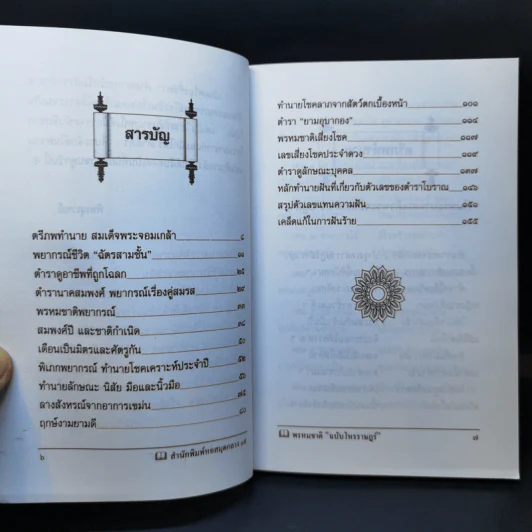 สารบัญ
ตรีภพทำนาย สมเด็จพระจอมเกล้า ๘
พยากรณ์ชีวิต "ฉัตรสามชั้น" ๑๑
ตำราดูอาชีพที่ถูกโฉลก ๒๕
ตำรานาคสมพงศ์ พยากรณ์เรื่องคู่สมรส ๒๘
พรหมชาติพยากรณ์ ๓๓
สมพงศ์ปี และชาติกำเนิด ๓๘
เดือนเป็นมิตรและศัตรูกัน ๕๐
พิภพพยากรณ์ ทำนายโชคเคราะห์ประจำปี ๕๒
ทำนายลักษณะ นิสัย มือและนิ้วมือ ๖๐
ลางสังหรณ์จากอาการเขม่น ๗๕
ฤกษ์งามยามดี ๘๐
๖ สำนักพิมพ์หอสมุดกลาง ๐๙
ทำนายโชคลาภจากสัตว์ตกเบื้องหน้า ๑๐๑
ตำรา "ยามอุบากอง" ๑๑๔
พรหมชาติเสี่ยงโชค ๑๑๗
เลขเสี่ยงโชคประจำดวง ๑๑๙
ตำราดูลักษณะบุคคล ๑๓๗
หลักทำนายฝันที่เกี่ยวกับตัวเลขของตำราโบราณ ๑๔๖
สรุปตัวเลขแทนความฝัน ๑๕๑
เคล็ดแก้ในการฝันร้าย ๑๕๕
พรหมชาติ "ฉบับโหราราษฎร์" ๗